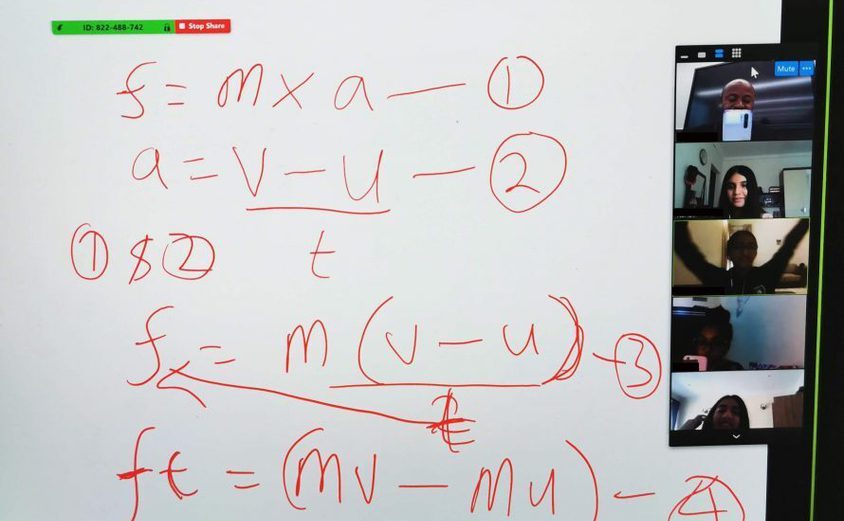 ID: 822-488-742 Stop Share
f = m x a — ①
a = v – u — ②
t
① & ②
f = m (v – u) – ③
t
ft = (mv – mu) – ④
Mute ...